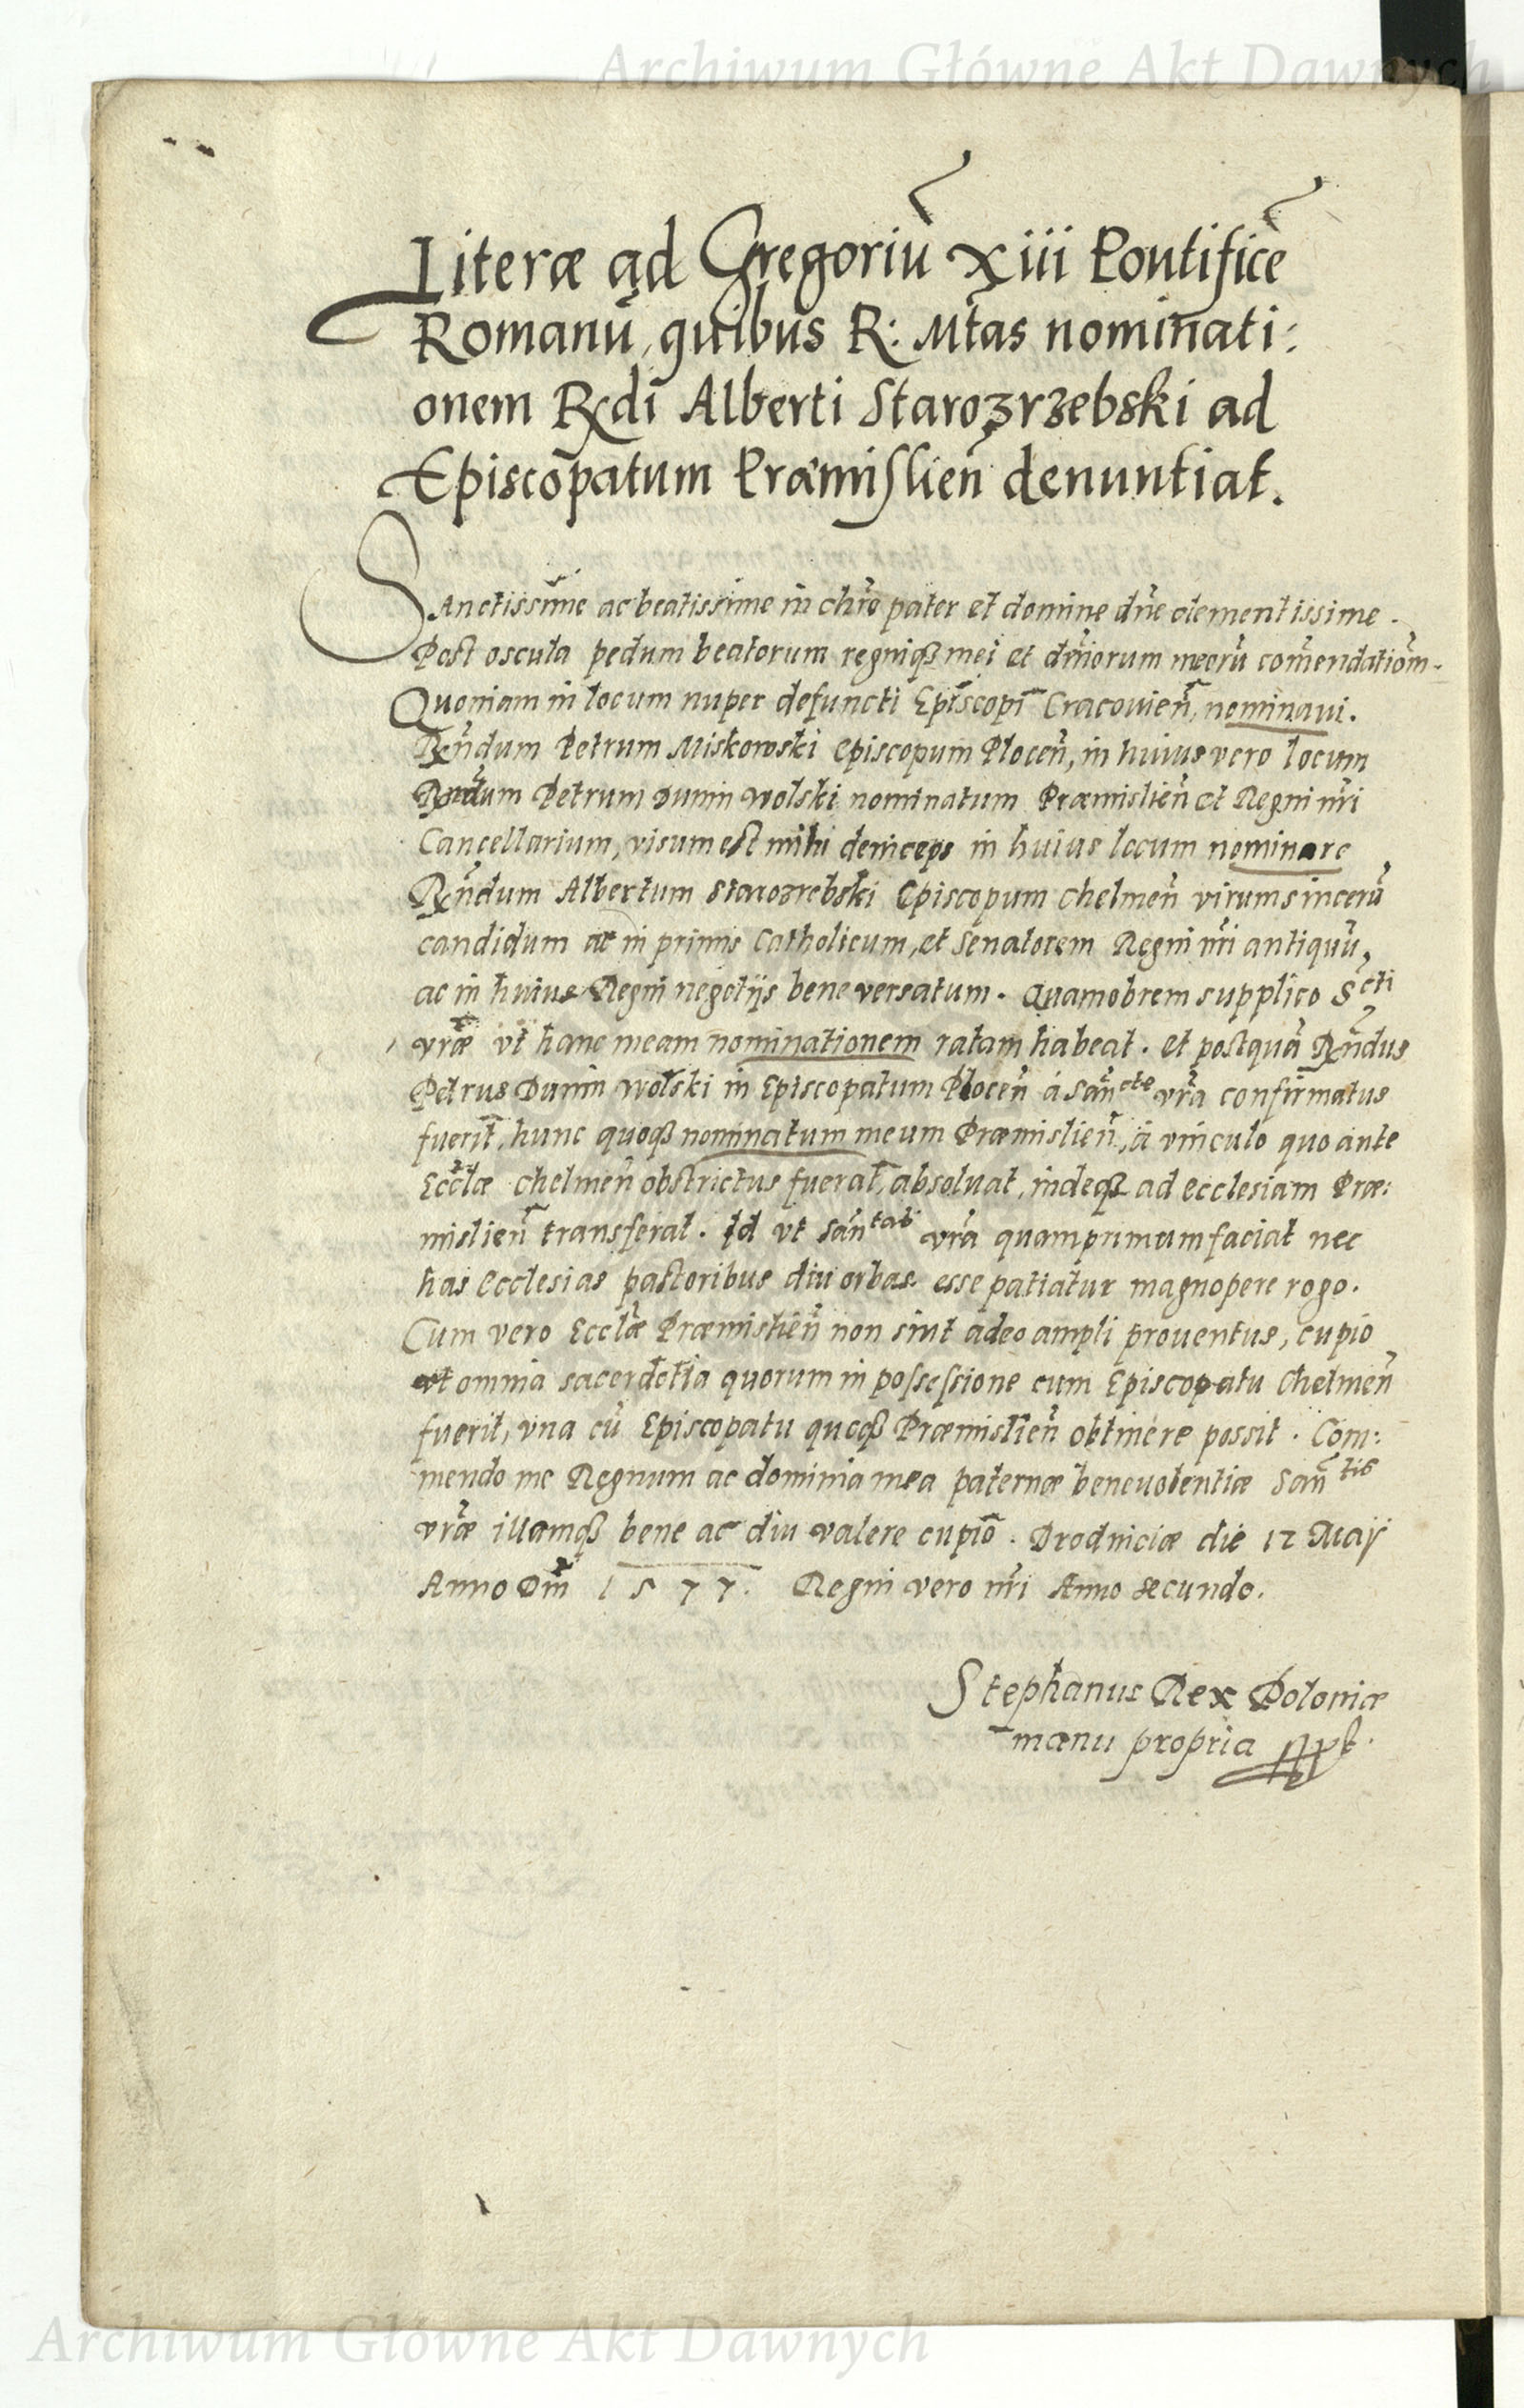 Archiwum Główne Akt Dawnych
Literæ ad Gregoriũ xiii Pontificẽ
Romanũ, quibus R: Mtas nominati:
onem Rdi Alberti Starozrzebski ad
Episcopatum Præmislien̄ denuntiat.
SAnctissime ac beatissime in chro pater et domine dñe clementissime.
Post oscula pedum beatorum regniqꝫ mei et dm̃iorum meorũ com̃endatiom̃.
Quoniam in locum nuper defuncti Episcopi Cracouien̄, nominaui.
Rñdum Petrum Miskowski Episcopum Plocen̄, in huius vero locum
Rndum Petrum Dunin Wolski nominatum Præmislien̄ et Regni nr̃i
Cancellarium, visum est mihi deinceps in huius locum nominare
Rñdum Albertum Starozrebski Episcopum Chelmen̄ virum sincerũ
candidum ac in primis Catholicum, et Senatorem Regni nr̃i antiquũ,
ac in huius Regni negotijs bene versatum. Quamobrem supplico Scti
vr̃æ vt hanc meam nominationem ratam habeat. et postquã Rñdus
Petrus Dunin Wolski in Episcopatum Plocen̄ à San̄cte vr̃a confirmatus
fuerit, hunc quoqꝫ nominatum meum Præmislien̄, à vinculo quo ante
Eccl̃æ Chelmen̄ obstrictus fuerat, absoluat, indeqꝫ ad ecclesiam Præ:
mislien̄ transferat. Id vt San̄tas vr̃a quamprimum faciat nec
has Ecclesias pastoribus diu orbas esse patiatur magnopere rogo.
Cum vero Eccl̃æ Præmislien̄ non sint adeo ampli prouentus, cupio
vt omnia sacerdotia quorum in possessione cum Episcopatu Chelmen̄
fuerit, vna cũ Episcopatu quoqꝫ Præmislien̄ obtinere possit. Com:
mendo me Regnum ac dominia mea paternæ beneuolentiæ San̄tis
vr̃æ illamqꝫ bene ac diu valere cupio. Brodniciæ die 12 Maij
Anno Dm̃ 1577. Regni vero nr̃i Anno secundo.
Stephanus Rex Poloniæ
manu propria
Archiwum Główne Akt Dawnych